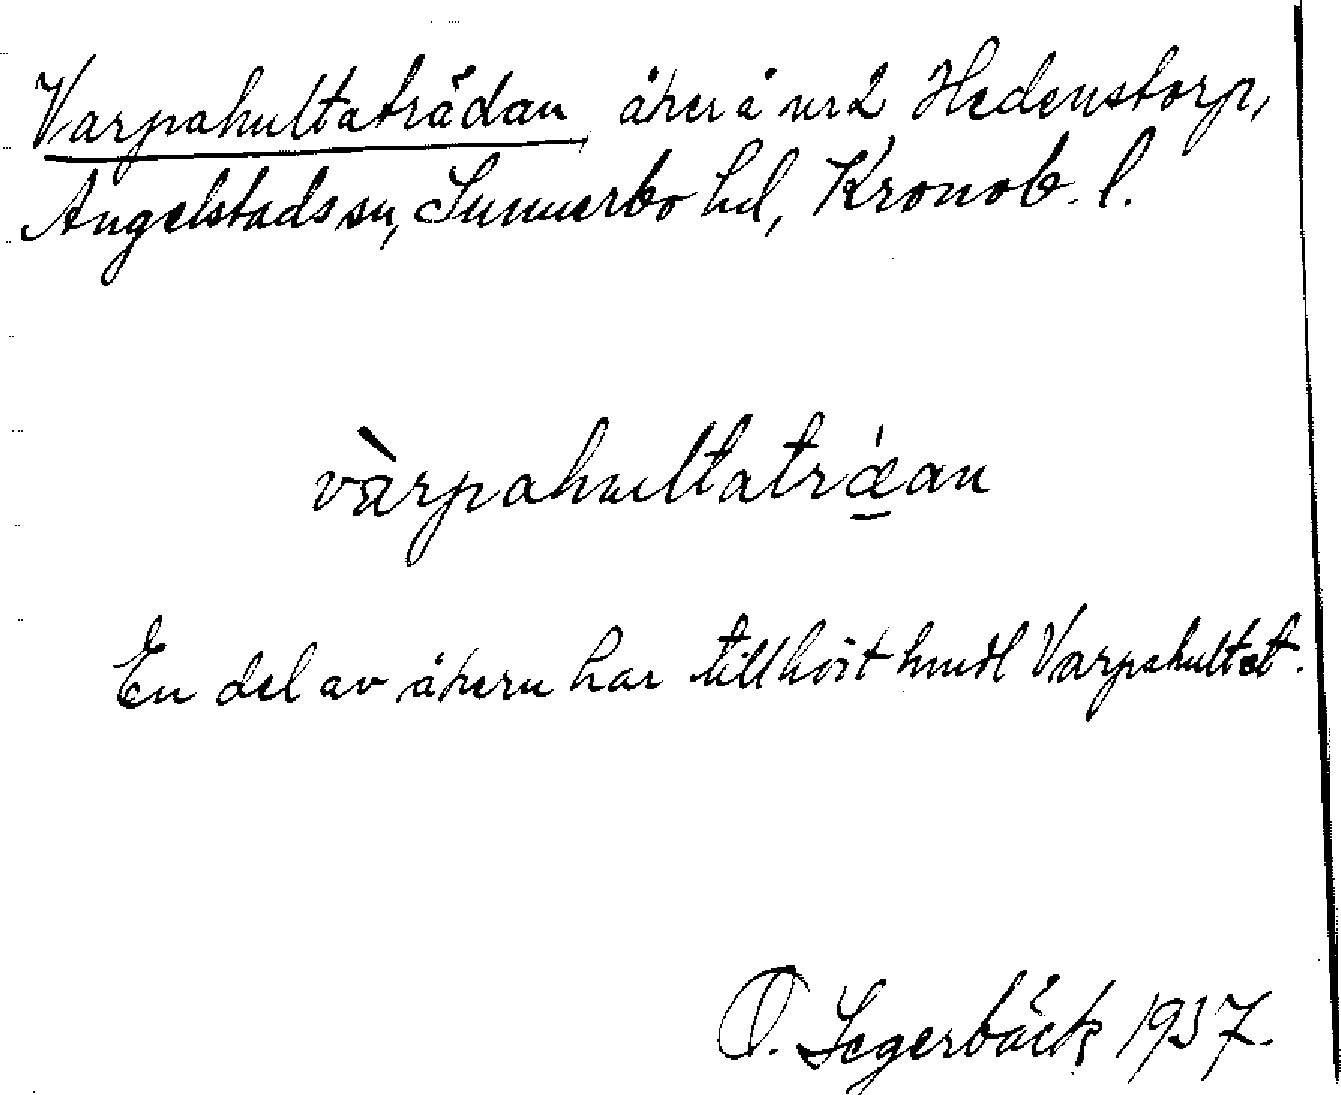 Varpahultaträdan, åker å nr 2 Hedenstorp,
Angelstads sn, Sunnerbo hd, Kronob. l.
vàrpahultatrǽan
En del av åkern har tillhört hmdl Varpahultet.
O. Segerbäck 1937.